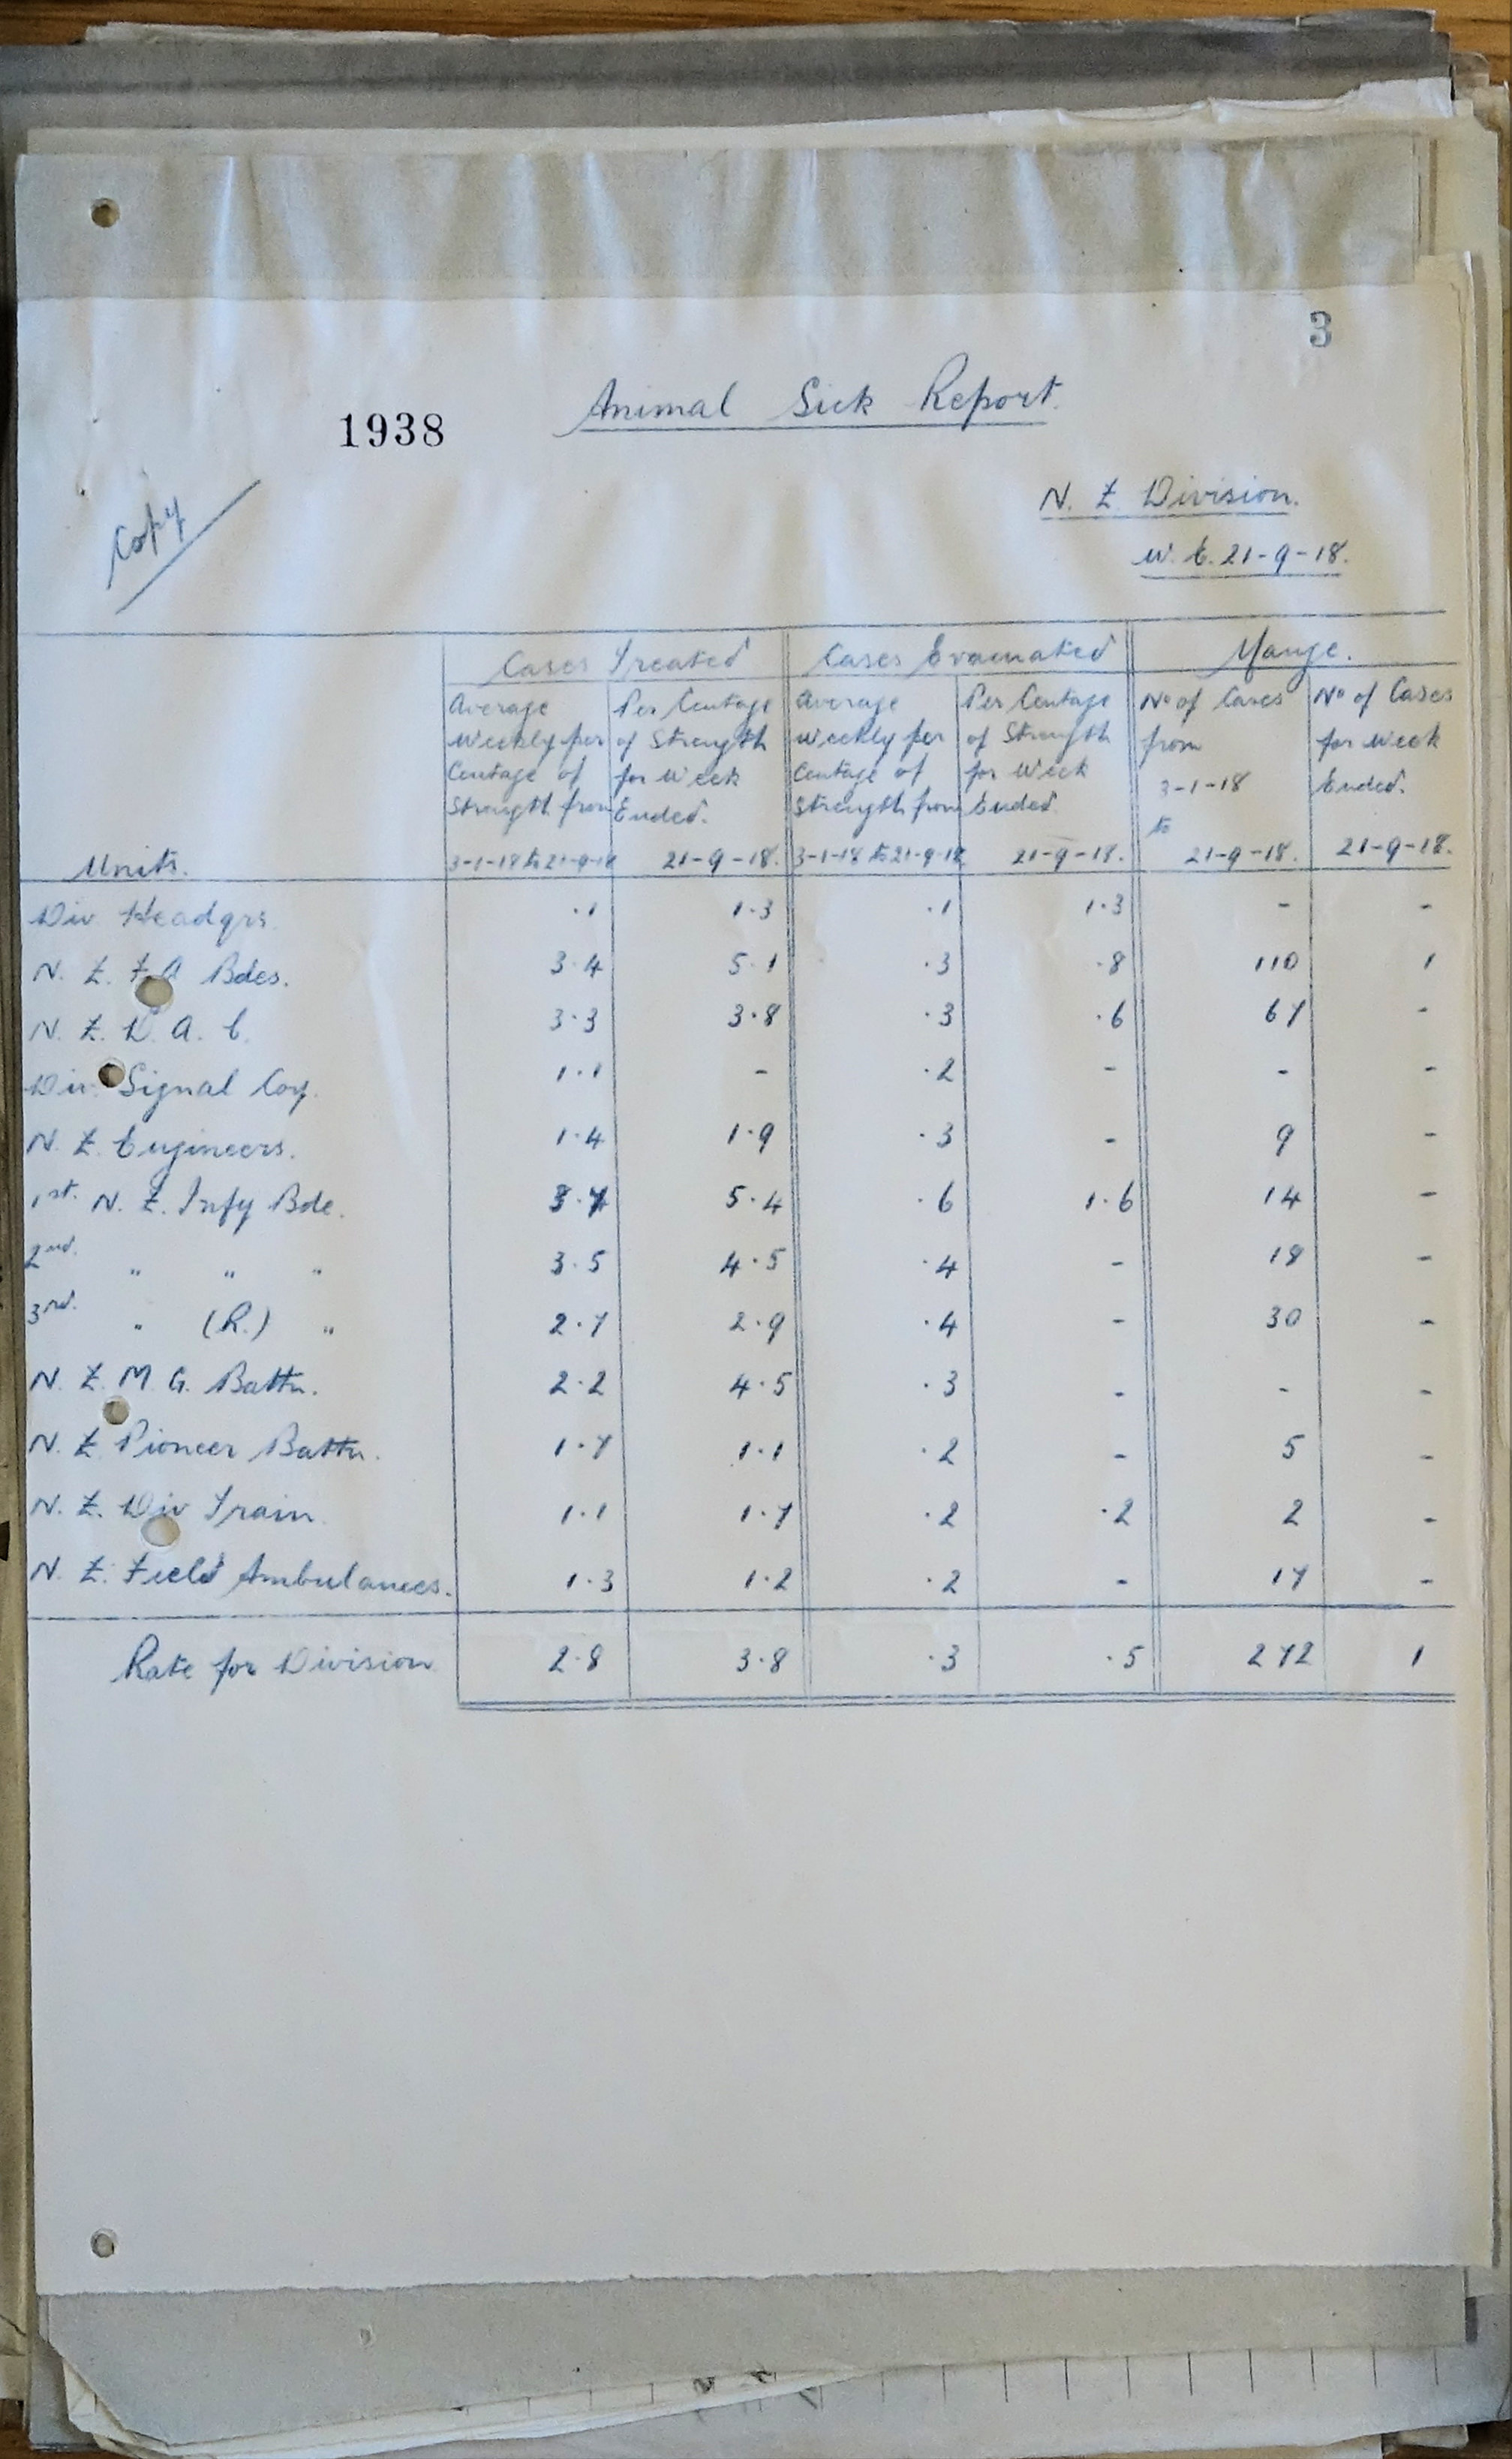 3
1938
Animal Sick Report.
Copy
N. Z. Division.
W. E. 21-9-18.
Cases Treated Cases Evacuated Mange.
Average Per Centage Average Per Centage No of Cases No of Cases
Weekly per of Strength Weekly per of Strength from for Week
Centage of for Week Centage of for Week 3-1-18 Ended.
Strength from Ended. Strength from Ended to
Units. 3-1-18 to 21-9-18 21-9-18. 3-1-18 to 21-9-18 21-9-18. 21-9-18. 21-9-18.
Div. Headqrs. ·1 1·3 ·1 1·3 - -
N. Z. F.A Bdes. 3·4 5·1 ·3 ·8 110 1
N. Z. D. A. C. 3·3 3·8 ·3 ·6 67 -
Div. Signal Coy. 1·1 - ·2 - - -
N. Z. Engineers. 1·4 1·9 ·3 - 9 -
1st. N. Z. Infy Bde. 5·4 ·6 1·6 14 -
2nd. " " " 3·5 4·5 ·4 - 18 -
3rd. " (R.) " 2·7 2·9 ·4 - 30 -
N. Z. M. G. Battn. 2·2 4·5 ·3 - - -
N. Z. Pioneer Battn. 1·7 1·1 ·2 - 5 -
N. Z. Div Train 1·1 1·7 ·2 ·2 2 -
N. Z. Field Ambulances. 1·3 1·2 ·2 - 17 -
Rate for Division 2·8 3·8 ·3 ·5 272 1